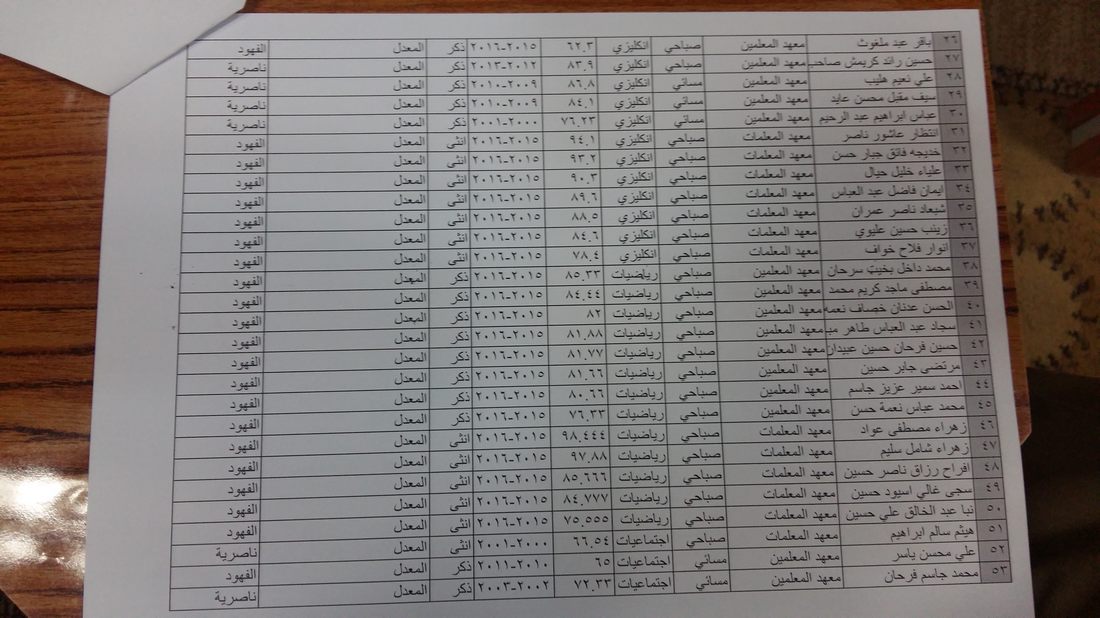 ٢٦ باقر عبد ملغوث معهد المعلمين صباحي انكليزي ٦٢.٣ ٢٠١٥-٢٠١٦ ذكر المعدل الفهود
٢٧ حسين رائد كريمش صاحب معهد المعلمين صباحي انكليزي ٨٣.٩ ٢٠١٢-٢٠١٣ ذكر المعدل ناصرية
٢٨ علي نعيم هليب معهد المعلمين مسائي انكليزي ٨٦.٨ ٢٠٠٩-٢٠١٠ ذكر المعدل ناصرية
٢٩ سيف مقبل محسن عايد معهد المعلمين مسائي انكليزي ٨٤.١ ٢٠٠٩-٢٠١٠ ذكر المعدل ناصرية
٣٠ عباس ابراهيم عبد الرحيم معهد المعلمين مسائي انكليزي ٧٦.٢٣ ٢٠٠٠-٢٠٠١ ذكر المعدل ناصرية
٣١ انتظار عاشور ناصر معهد المعلمات صباحي انكليزي ٩٤.١ ٢٠١٥-٢٠١٦ انثى المعدل الفهود
٣٢ خديجه فائق جبار حسن معهد المعلمات صباحي انكليزي ٩٣.٢ ٢٠١٥-٢٠١٦ انثى المعدل الفهود
٣٣ علياء خليل حيال معهد المعلمات صباحي انكليزي ٩٠.٣ ٢٠١٥-٢٠١٦ انثى المعدل الفهود
٣٤ ايمان فاضل عبد العباس معهد المعلمات صباحي انكليزي ٨٩.٦ ٢٠١٥-٢٠١٦ انثى المعدل الفهود
٣٥ شبعاد ناصر عمران معهد المعلمات صباحي انكليزي ٨٨.٥ ٢٠١٥-٢٠١٦ انثى المعدل الفهود
٣٦ زينب حسين عليوي معهد المعلمات صباحي انكليزي ٨٤.٦ ٢٠١٥-٢٠١٦ انثى المعدل الفهود
٣٧ انوار فلاح خواف معهد المعلمات صباحي انكليزي ٧٨.٤ ٢٠١٥-٢٠١٦ انثى المعدل الفهود
٣٨ محمد داخل بخيت سرحان معهد المعلمين صباحي رياضيات ٨٥.٣٣ ٢٠١٥-٢٠١٦ ذكر المعدل الفهود
٣٩ مصطفى ماجد كريم محمد معهد المعلمين صباحي رياضيات ٨٤.٤٤ ٢٠١٥-٢٠١٦ ذكر المعدل الفهود
٤٠ الحسن عدنان خصاف نعمه معهد المعلمين صباحي رياضيات ٨٢ ٢٠١٥-٢٠١٦ ذكر المعدل الفهود
٤١ سجاد عبد العباس طاهر مب معهد المعلمين صباحي رياضيات ٨١.٨٨ ٢٠١٥-٢٠١٦ ذكر المعدل الفهود
٤٢ حسين فرحان حسين عبيدان معهد المعلمين صباحي رياضيات ٨١.٧٧ ٢٠١٥-٢٠١٦ ذكر المعدل الفهود
٤٣ مرتضى جابر حسين معهد المعلمين صباحي رياضيات ٨١.٦٦ ٢٠١٥-٢٠١٦ ذكر المعدل الفهود
٤٤ احمد سمير عزيز جاسم معهد المعلمين صباحي رياضيات ٨٠.٦٦ ٢٠١٥-٢٠١٦ ذكر المعدل الفهود
٤٥ محمد عباس نعمة حسن معهد المعلمين صباحي رياضيات ٧٦.٣٣ ٢٠١٥-٢٠١٦ ذكر المعدل الفهود
٤٦ زهراء مصطفى عواد معهد المعلمات صباحي رياضيات ٩٨.٤٤٤ ٢٠١٥-٢٠١٦ انثى المعدل الفهود
٤٧ زهراء شامل سليم معهد المعلمات صباحي رياضيات ٩٧.٨٨ ٢٠١٥-٢٠١٦ انثى المعدل الفهود
٤٨ افراح رزاق ناصر حسين معهد المعلمات صباحي رياضيات ٨٥.٦٦٦ ٢٠١٥-٢٠١٦ انثى المعدل الفهود
٤٩ سجى غالي اسيود حسين معهد المعلمات صباحي رياضيات ٨٤.٧٧٧ ٢٠١٥-٢٠١٦ انثى المعدل الفهود
٥٠ نبا عبد الخالق علي حسين معهد المعلمات صباحي رياضيات ٧٥.٥٥٥ ٢٠١٥-٢٠١٦ انثى المعدل الفهود
٥١ هيثم سالم ابراهيم معهد المعلمات صباحي اجتماعيات ٦٦.٥٤ ٢٠٠٠-٢٠٠١ انثى المعدل ناصرية
٥٢ علي محسن ياسر معهد المعلمين مسائي اجتماعيات ٦٥ ٢٠١٠-٢٠١١ ذكر المعدل الفهود
٥٣ محمد جاسم فرحان معهد المعلمين مسائي اجتماعيات ٧٢.٣٣ ٢٠٠٢-٢٠٠٣ ذكر المعدل ناصرية